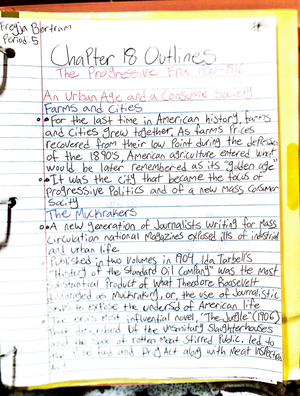 Freyja Bertram
Period: 5
Chapter 18 Outlines
The Progressive Era 1900-1916
An Urban Age and a Consume Society
Farms and Cities
• For the last time in American history, farms
and Cities grew together. As farms Prices
recovered from their low Point during the depression
of the 1890's, American agriculture entered what
would be later remembered as its "golden age"
• It was the city that became the focus of
Progressive Politics and of a new mass consumer
Society
The Muckrakers
• A new generation of Journalists writing for mass
circulation national Magazines exposed ills of industrial
and urban life
Published in two Volumes in 1904, Ida Tarbell's
"History of the Standard Oil Company" was the most
substantial Product of what Theodore Roosevelt
as Muckraking, or, the use of Journalistic
to expose the undersid of American life
most influential novel, "The Jungle" (1906)
that described of the Unsanitary Slaughterhouses
and the Sale of rotten Meat Stirred Public. led to
Pure Food and Drug Act along with Meat Inspection
Act